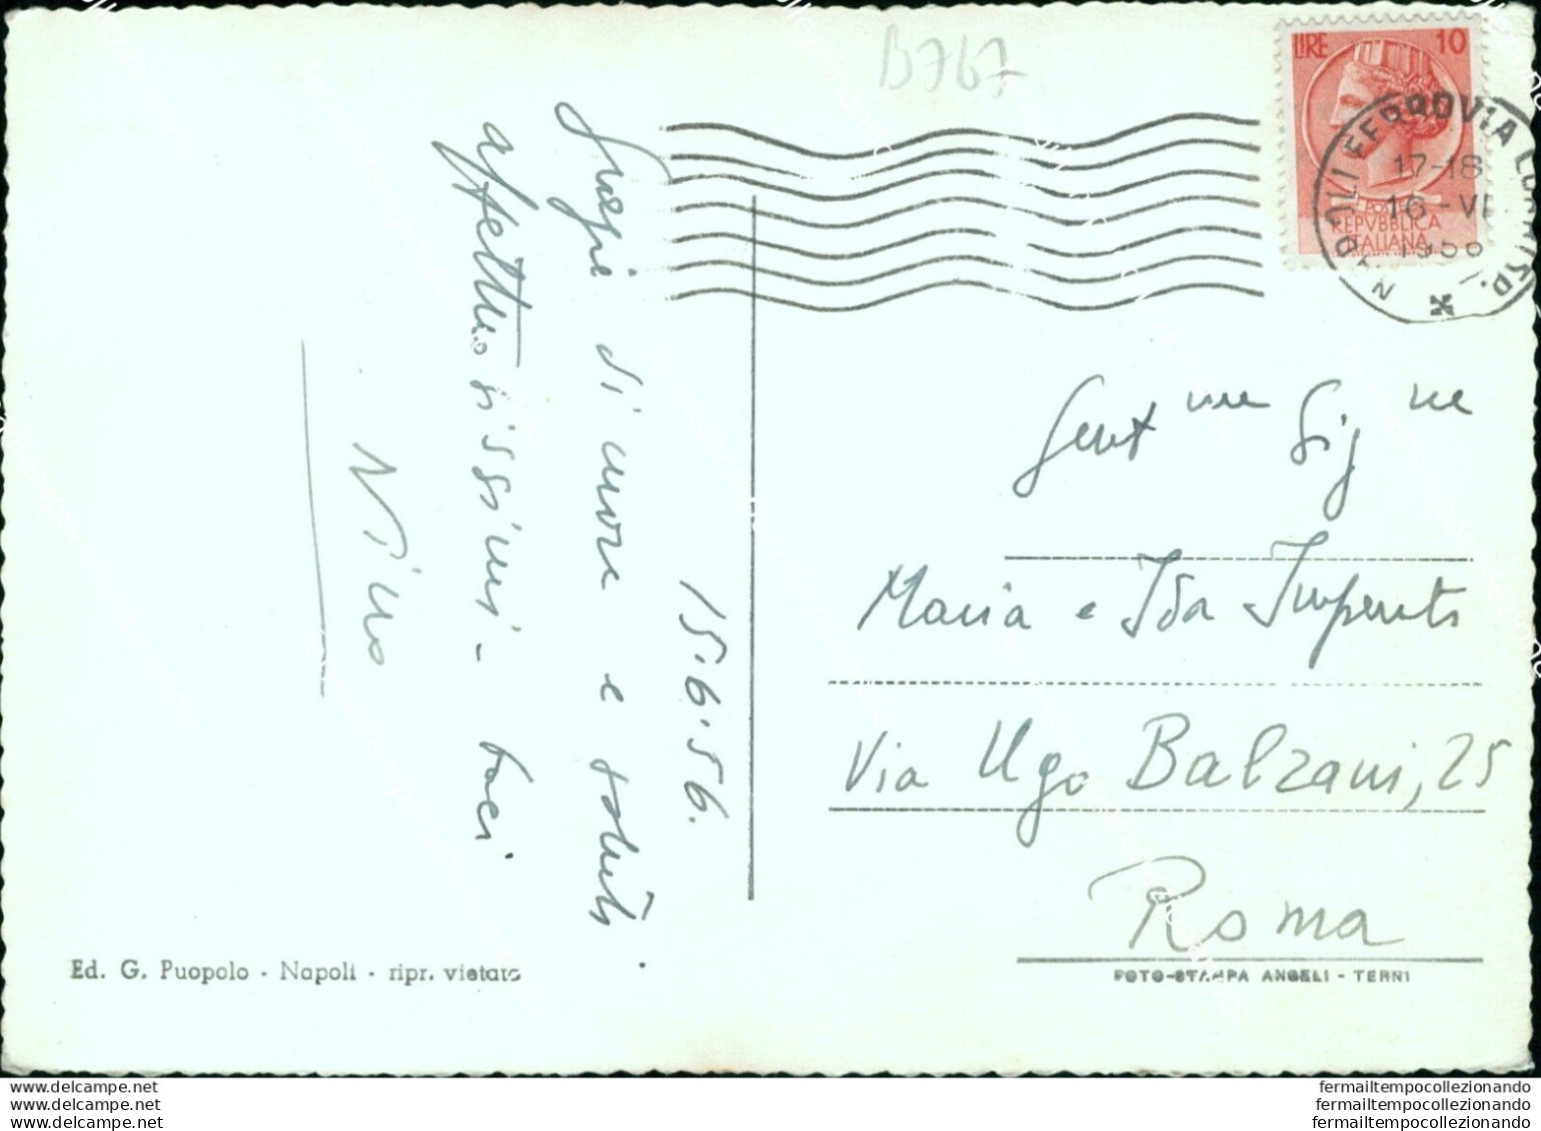 B767
LIRE 10
REPVBBLICA
ITALIANA
NAPOLI FERROVIA CORRISP.
17-18
16-VI
1956
15·6·56.
Grazie di cuore e saluti
affettuosissimi - baci
Nino
Gent me Sig ne
Maria e Ida Imperato
Via Ugo Balzani, 25
Roma
Ed. G. Puopolo - Napoli - ripr. vietata
FOTO-STAMPA ANGELI - TERNI
www.delcampe.net
www.delcampe.net
www.delcampe.net
fermailtempocollezionando
fermailtempocollezionando
fermailtempocollezionando